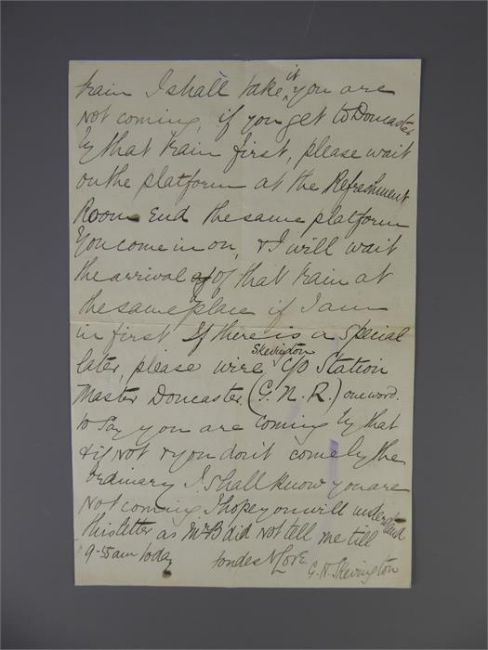 train I shall take, it you are
not coming, if you get to Doncaster
by that train first, please wait
on the platform at the Refreshment
Room End the same platform
you come in on, & I will wait
the arrival of of that train at
the same place if I am
in first If there is a special
later, please wire, Skevington c/o Station
Master Doncaster (G.N.R.) one word.
to say you are coming by that
& if not & you don't come by the
ordinary I shall know you are
Not coming. I hope you will understand
this letter as Mr B did not tell me till
9-55am today fondest Love
G.H. Skevington